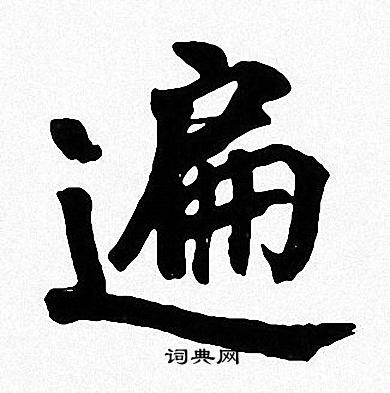 遍
词典网